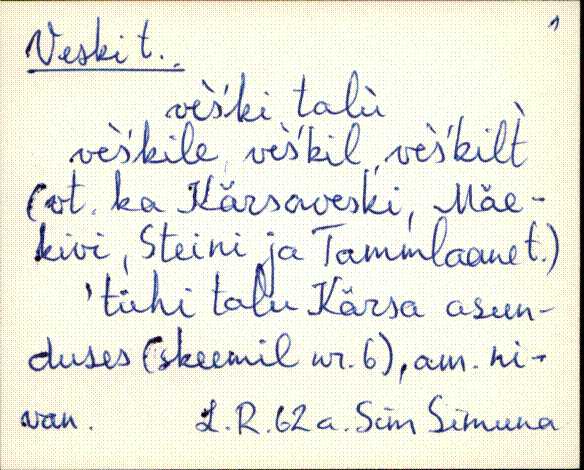 1
Veski t.
vès'ki talù
vès'kile, vès'kil, vès'kilt̀
(vt. ka Kärsaveski, Mäe-
kivi, Steini ja Tammlaane t.)
'tühi talu Kärsa asun-
duses (skeemil nr. 6), am. ni-
van. L.R. 62 a. Sim Simuna